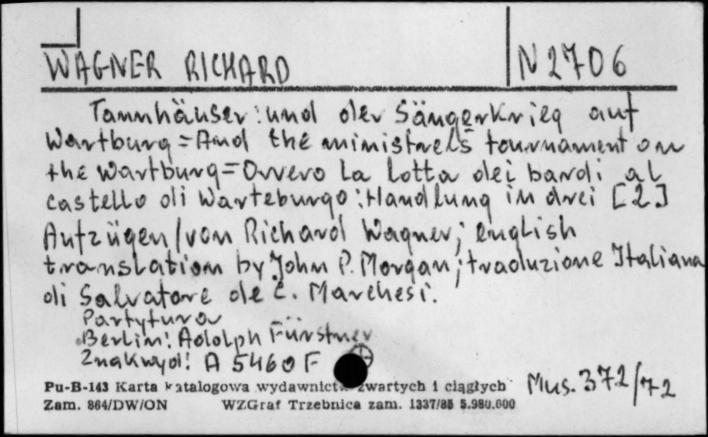 WAGNER RICHARD
N 2706
Tannhäuser: und der Sängerkrieg auf
Wartburg = And the ministrels tournament on
the Wartburg = Ovvero la lotta dei bardi al
castello di Warteburgo : Handlung in drei [2]
Aufzügen / von Richard Wagner ; english
translation by John P. Morgan ; traduzione Italiana
di Salvatore de C. Marchesi.
Partytura
Berlin: Adolph Fürstner
Znak wyd: A 5460 F
Pu-B-143 Karta katalogowa wydawnictw zwartych i ciągłych
Mus. 372/72
Zam. 864/DW/ON WZGraf Trzebnica zam. 1337/85 5.980.000